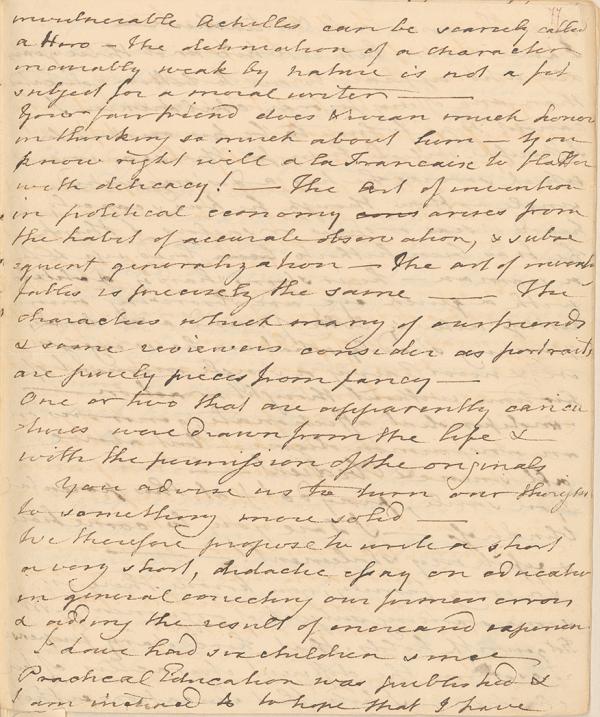 77
invulnerable Achilles can be scarcely called
a Hero — the delineation of a character
invariably weak by nature is not a fit
subject for a moral writer —
Your fair friend does Vivian much honor
in thinking so much about him — You
know right well a la Francaise to flatter
with delicacy! — The art of invention
in political economy arises from
the habit of accurate observation, & subse
quent generalization — The art of inventg
fables is precisely the same — The
characters which many of our friends
& some reviewers consider as portraits
are purely pieces from fancy —
One or two that are apparently carica
=tures were drawn from the life &
with the permission of the originals
You advise us to turn our thoughts
to something more solid —
We therefore propose to write a short
a very short, didactic essay on education
in general correcting our former errors
& adding the result of increased experience
I have had six children since
Practical Education was published &
I am inclined to hope that I have